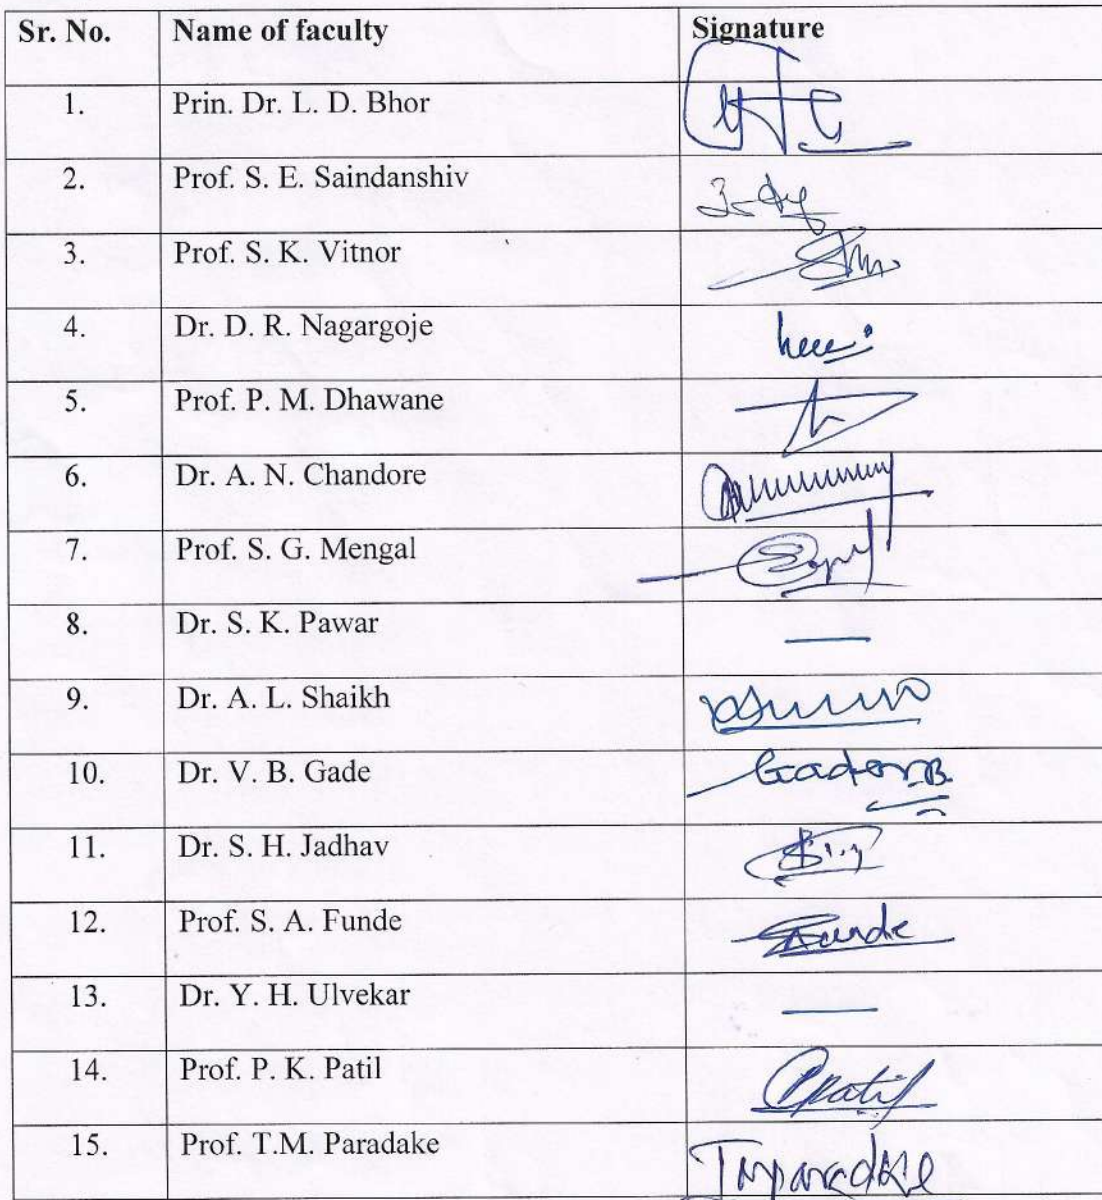 Sr. No. Name of faculty Signature
1. Prin. Dr. L. D. Bhor
2. Prof. S. E. Saindanshiv
3. Prof. S. K. Vitnor
4. Dr. D. R. Nagargoje
5. Prof. P. M. Dhawane
6. Dr. A. N. Chandore
7. Prof. S. G. Mengal
8. Dr. S. K. Pawar —
9. Dr. A. L. Shaikh
10. Dr. V. B. Gade
11. Dr. S. H. Jadhav
12. Prof. S. A. Funde Funde
13. Dr. Y. H. Ulvekar —
14. Prof. P. K. Patil Patil
15. Prof. T.M. Paradake Tmparadake